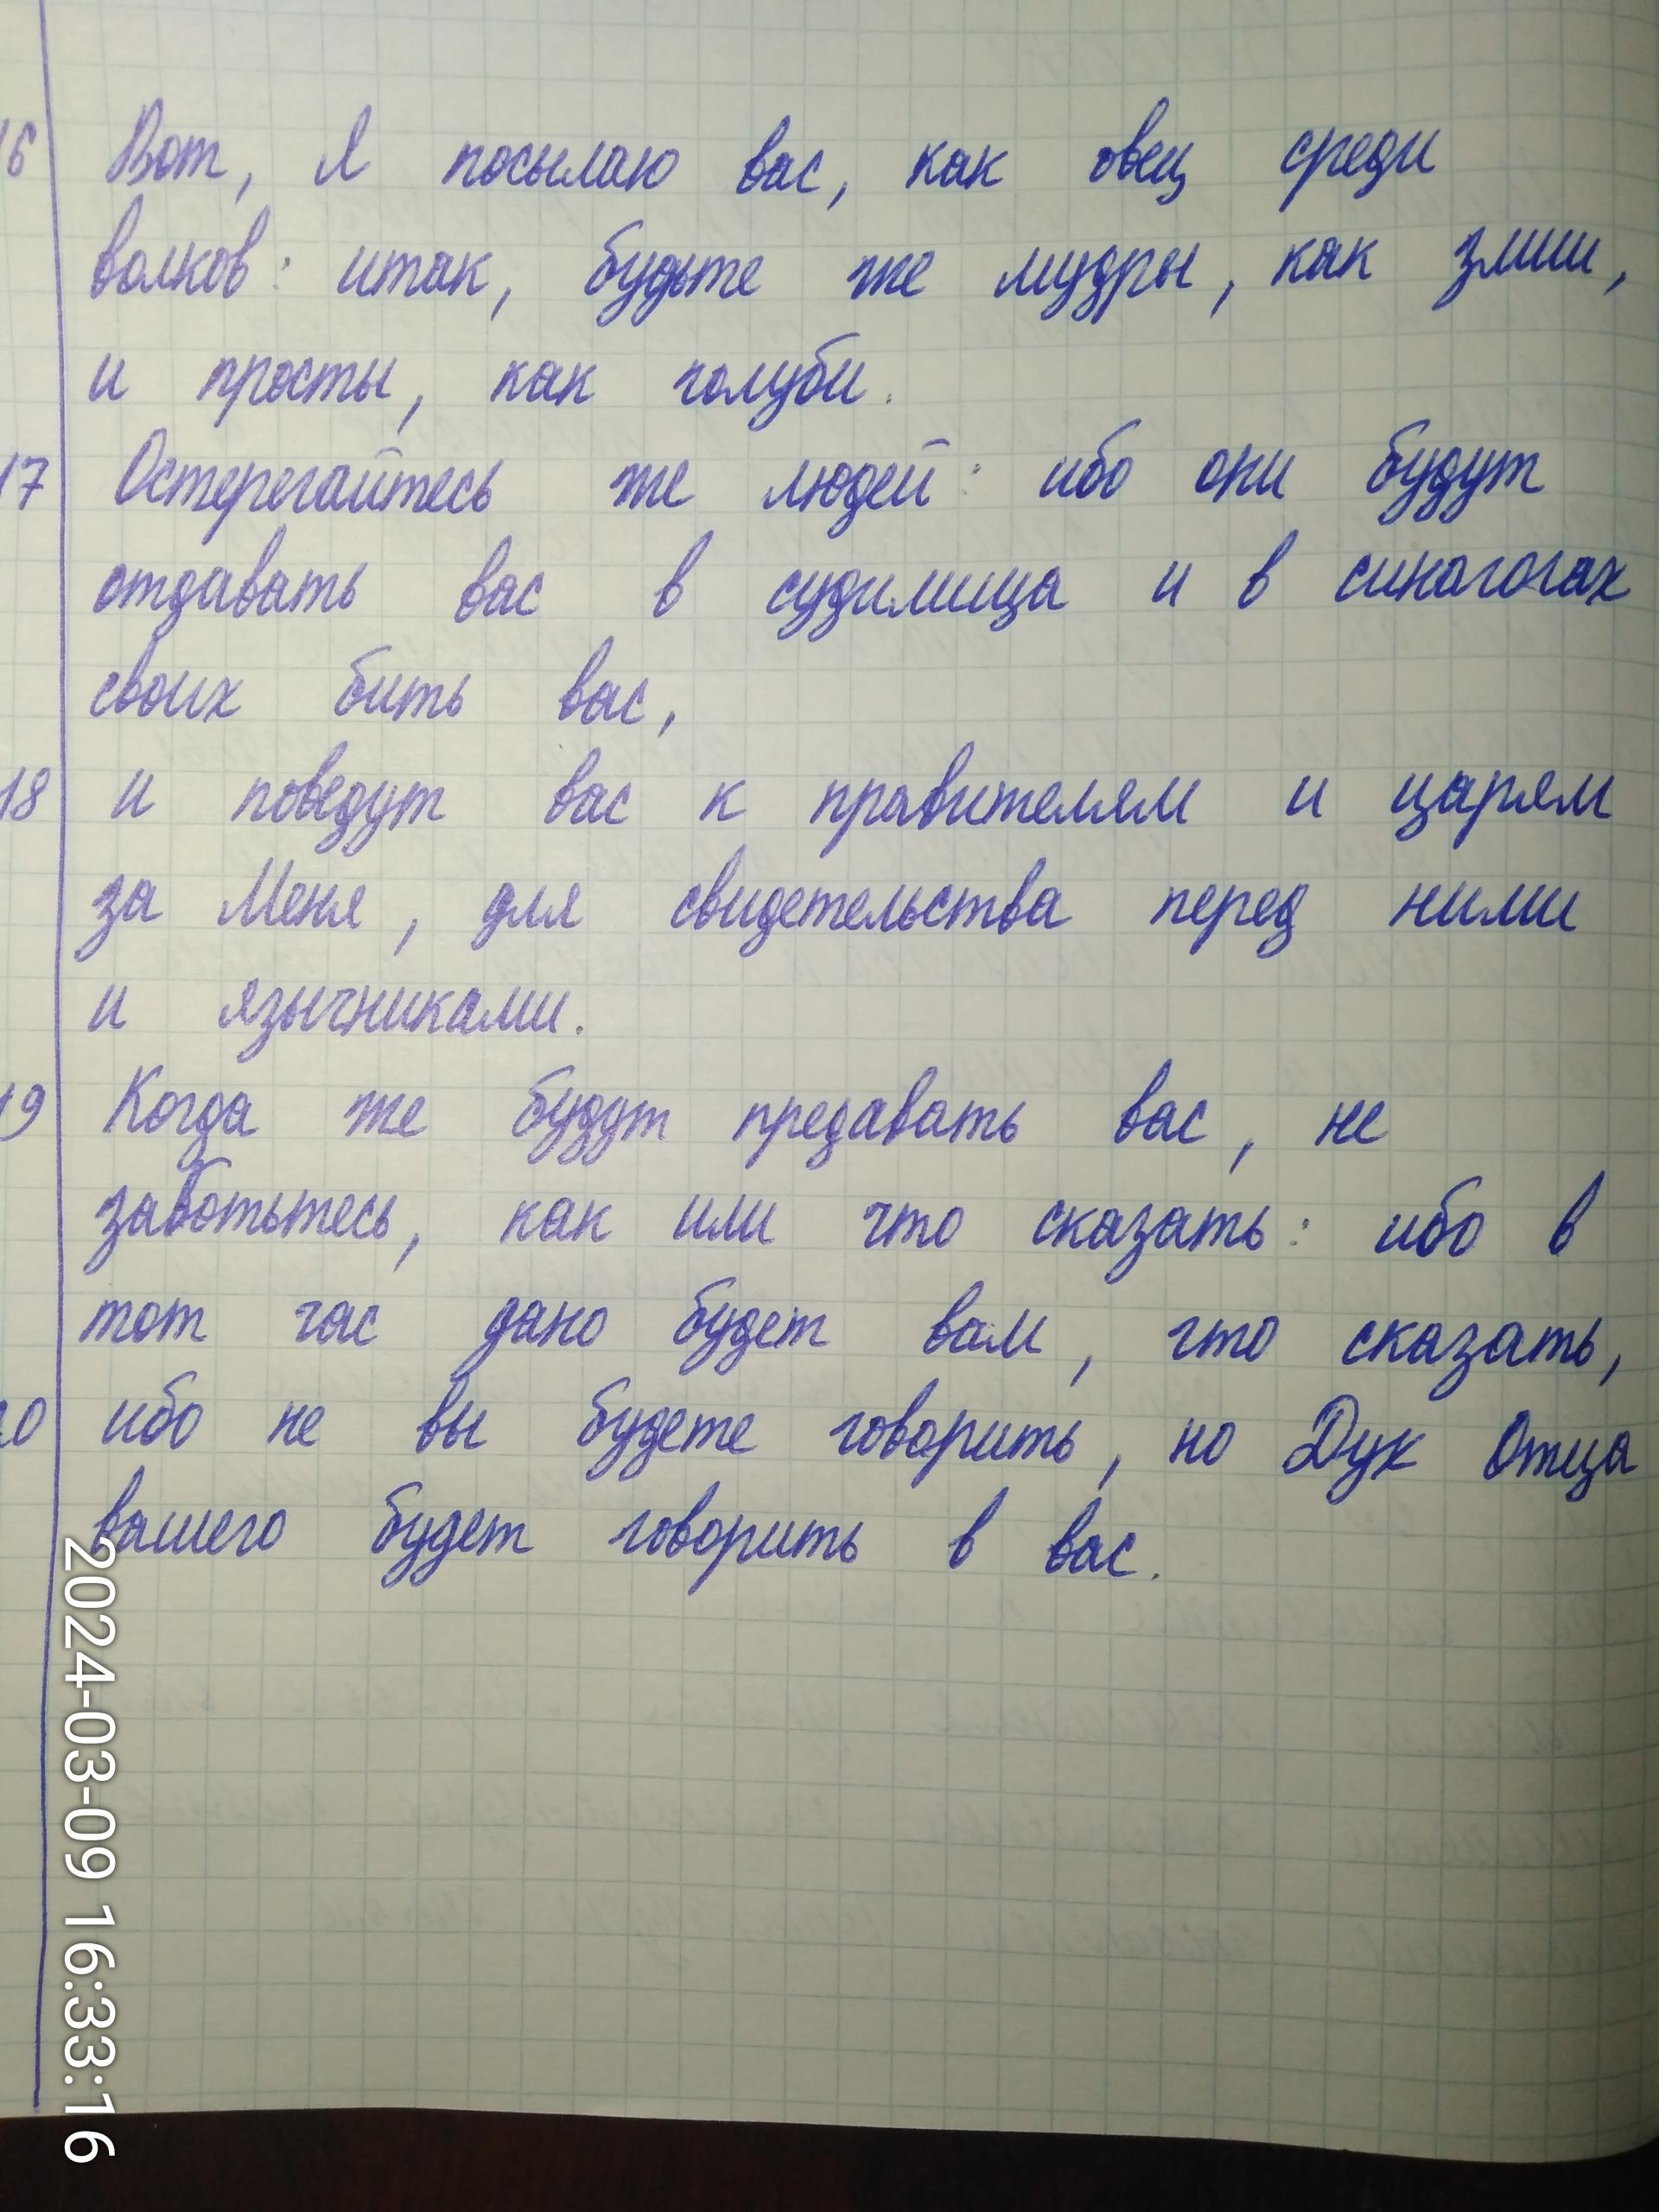 16 Вот, Я посылаю вас, как овец среди
волков: итак, будьте же мудры, как змии,
и просты, как голуби.
17 Остерегайтесь же людей: ибо они будут
отдавать вас в судилища и в синагогах
своих бить вас,
18 и поведут вас к правителям и царям
за Меня, для свидетельства перед ними
и язычниками.
19 Когда же будут предавать вас, не
заботьтесь, как или что сказать: ибо в
тот час дано будет вам, что сказать,
20 ибо не вы будете говорить, но Дух Отца
вашего будет говорить в вас.
2024-03-09 16:33:16